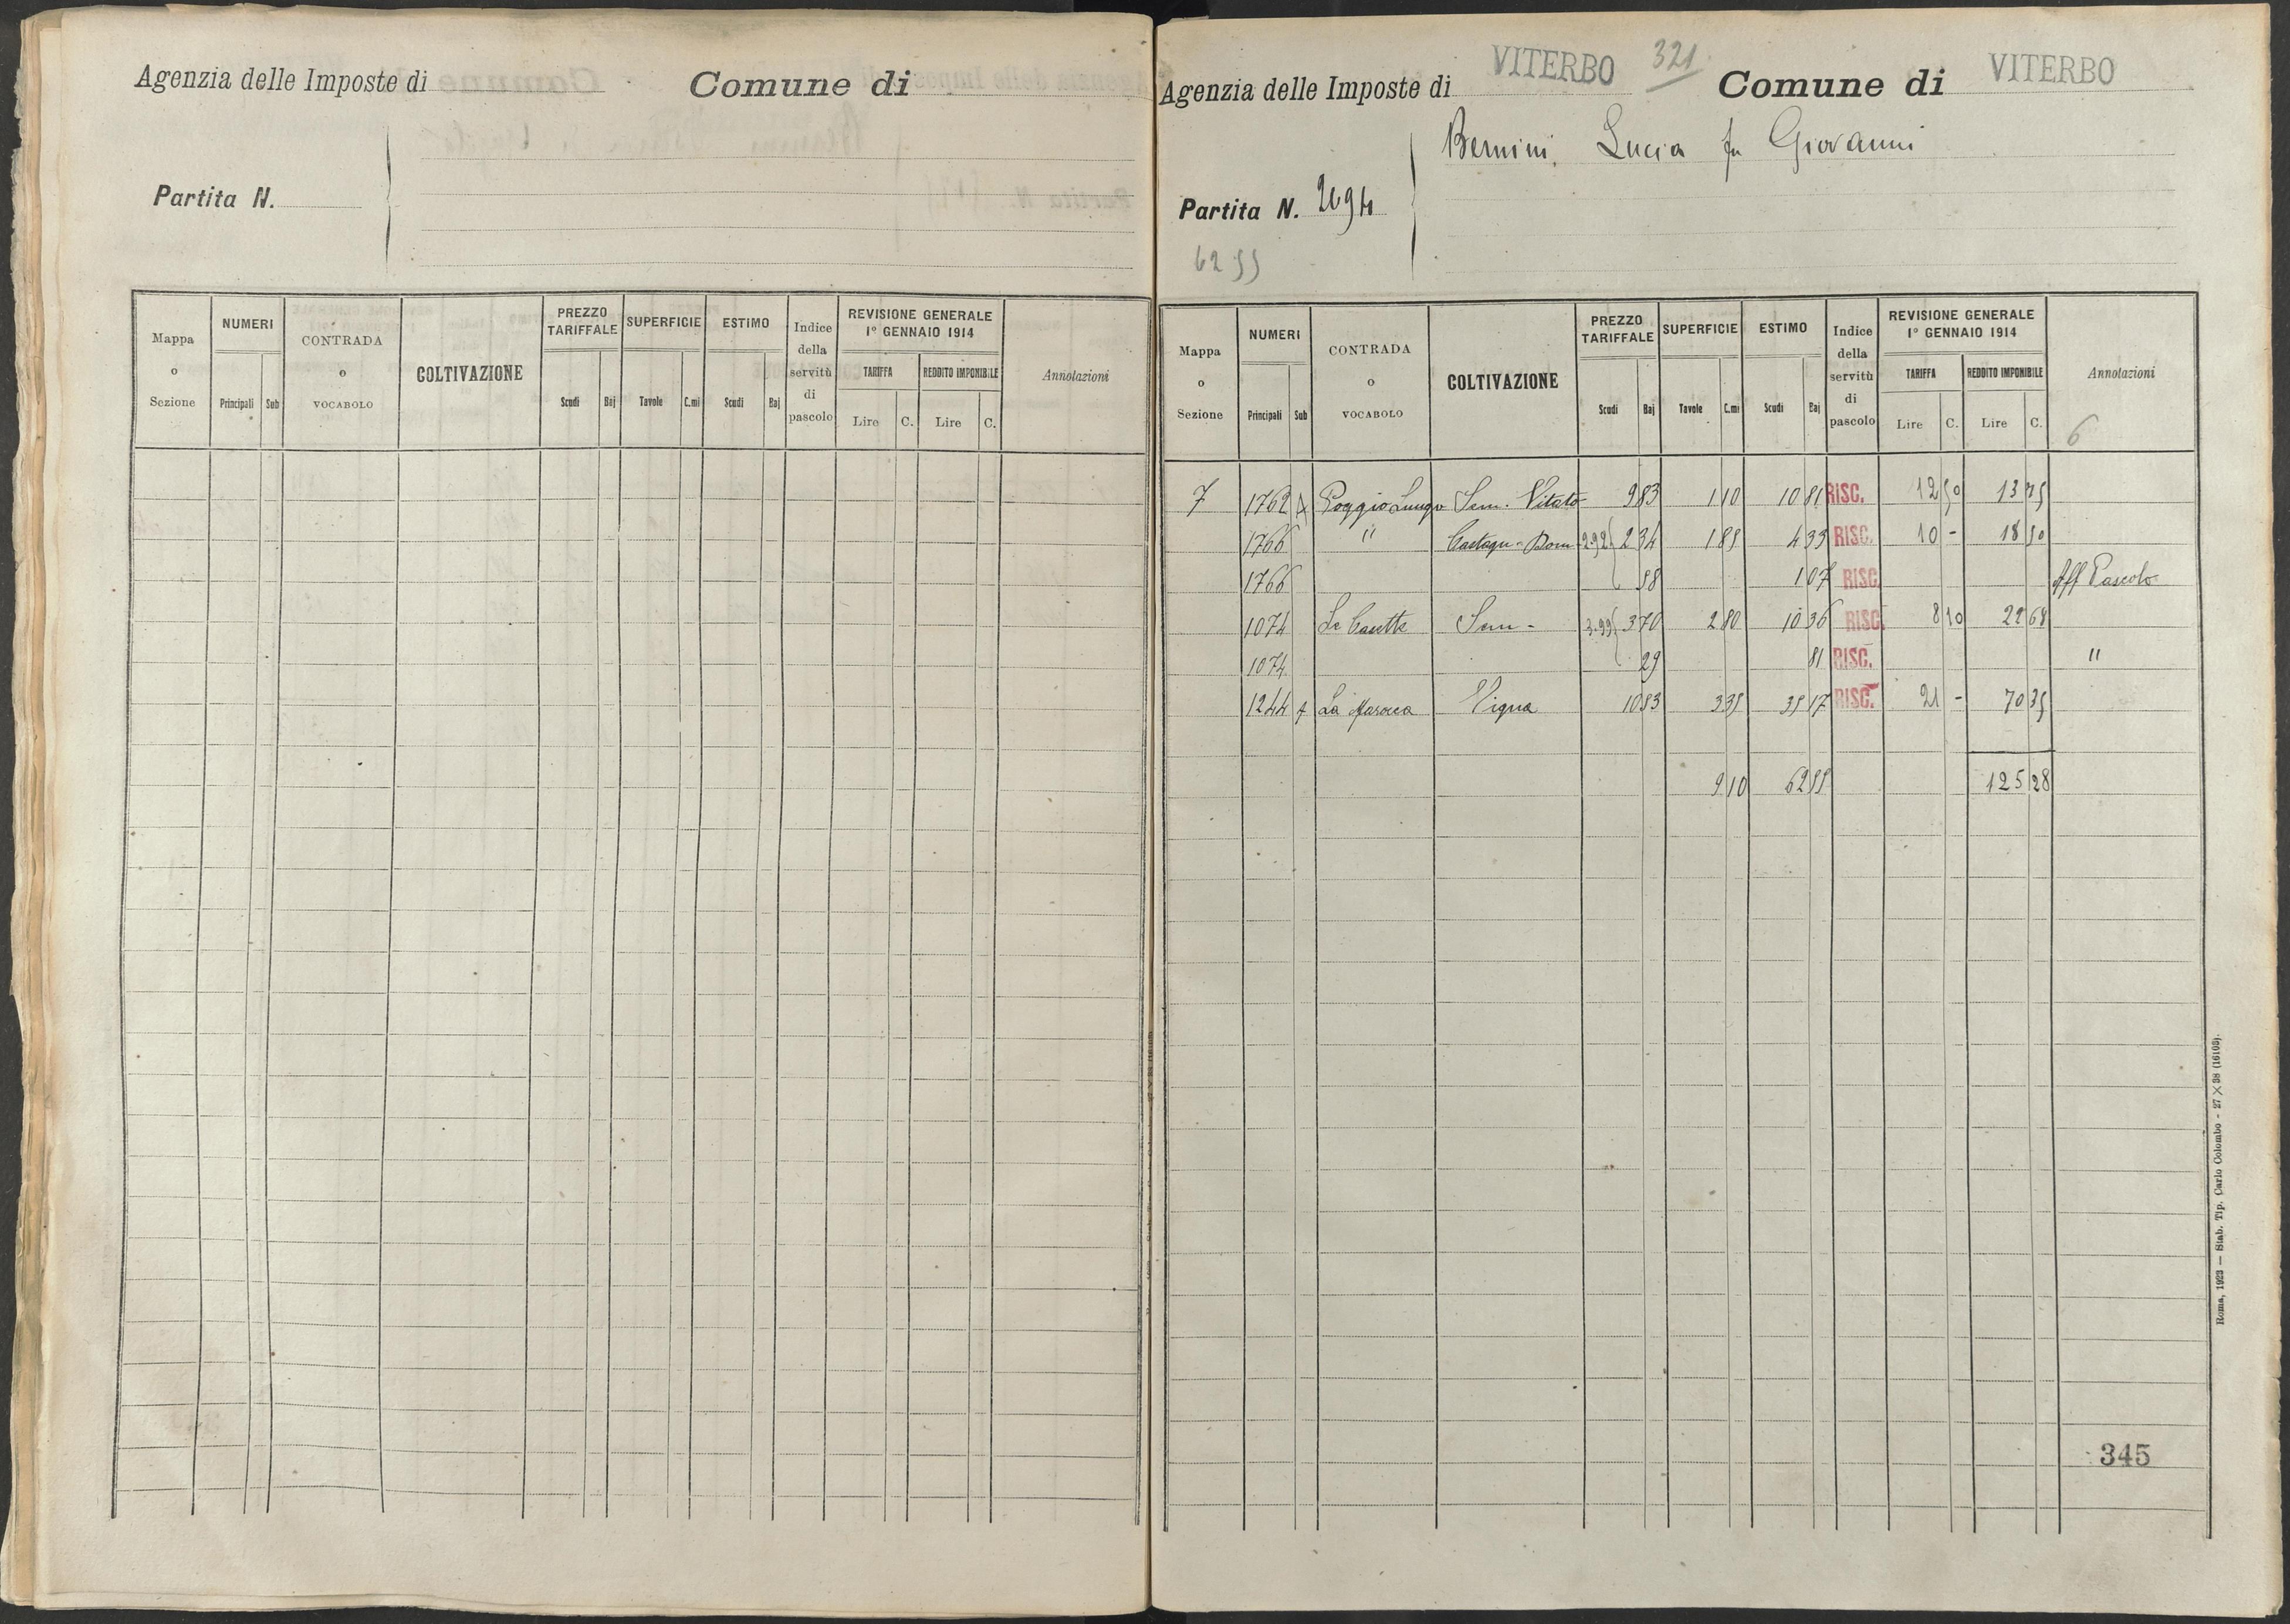 Agenzia delle Imposte di
Comune di
Partita N.
Mappa o Sezione
NUMERI
Principali Sub
CONTRADA o VOCABOLO
COLTIVAZIONE
PREZZO TARIFFALE
Scudi Baj
SUPERFICIE
Tavole C.mi
ESTIMO
Scudi Baj
Indice della servitù di pascolo
REVISIONE GENERALE
1° GENNAIO 1914
TARIFFA
Lire C.
REDDITO IMPONIBILE
Lire C.
Annotazioni
Agenzia delle Imposte di VITERBO 321 Comune di VITERBO
Bernini Lucia fu Giovanni
Partita N. 2694
6255
Mappa o Sezione
NUMERI
Principali Sub
CONTRADA o VOCABOLO
COLTIVAZIONE
PREZZO TARIFFALE
Scudi Baj
SUPERFICIE
Tavole C.mi
ESTIMO
Scudi Baj
Indice della servitù di pascolo
REVISIONE GENERALE
1° GENNAIO 1914
TARIFFA
Lire C.
REDDITO IMPONIBILE
Lire C.
Annotazioni
6
7 1762 Poggio Lungo Sem. Vitato 9 83 1 10 10 81 RISC. 12 50 13 75
1766 " Castagn. Dom 2.92 2 34 1 85 4 33 RISC. 10 - 18 50
1766 58 1 07 RISC. Aff Pascolo
1074 Sem - 3.99 3 70 2 80 10 36 RISC. 8 10 22 68
1074 29 81 RISC. "
1244 La Vigna 10 53 3 35 35 17 RISC. 21 - 70 35
9 10 62 55 125 28
345
Roma, 1923 — Stab. Tip. Carlo Colombo - 27 × 38 (16103).